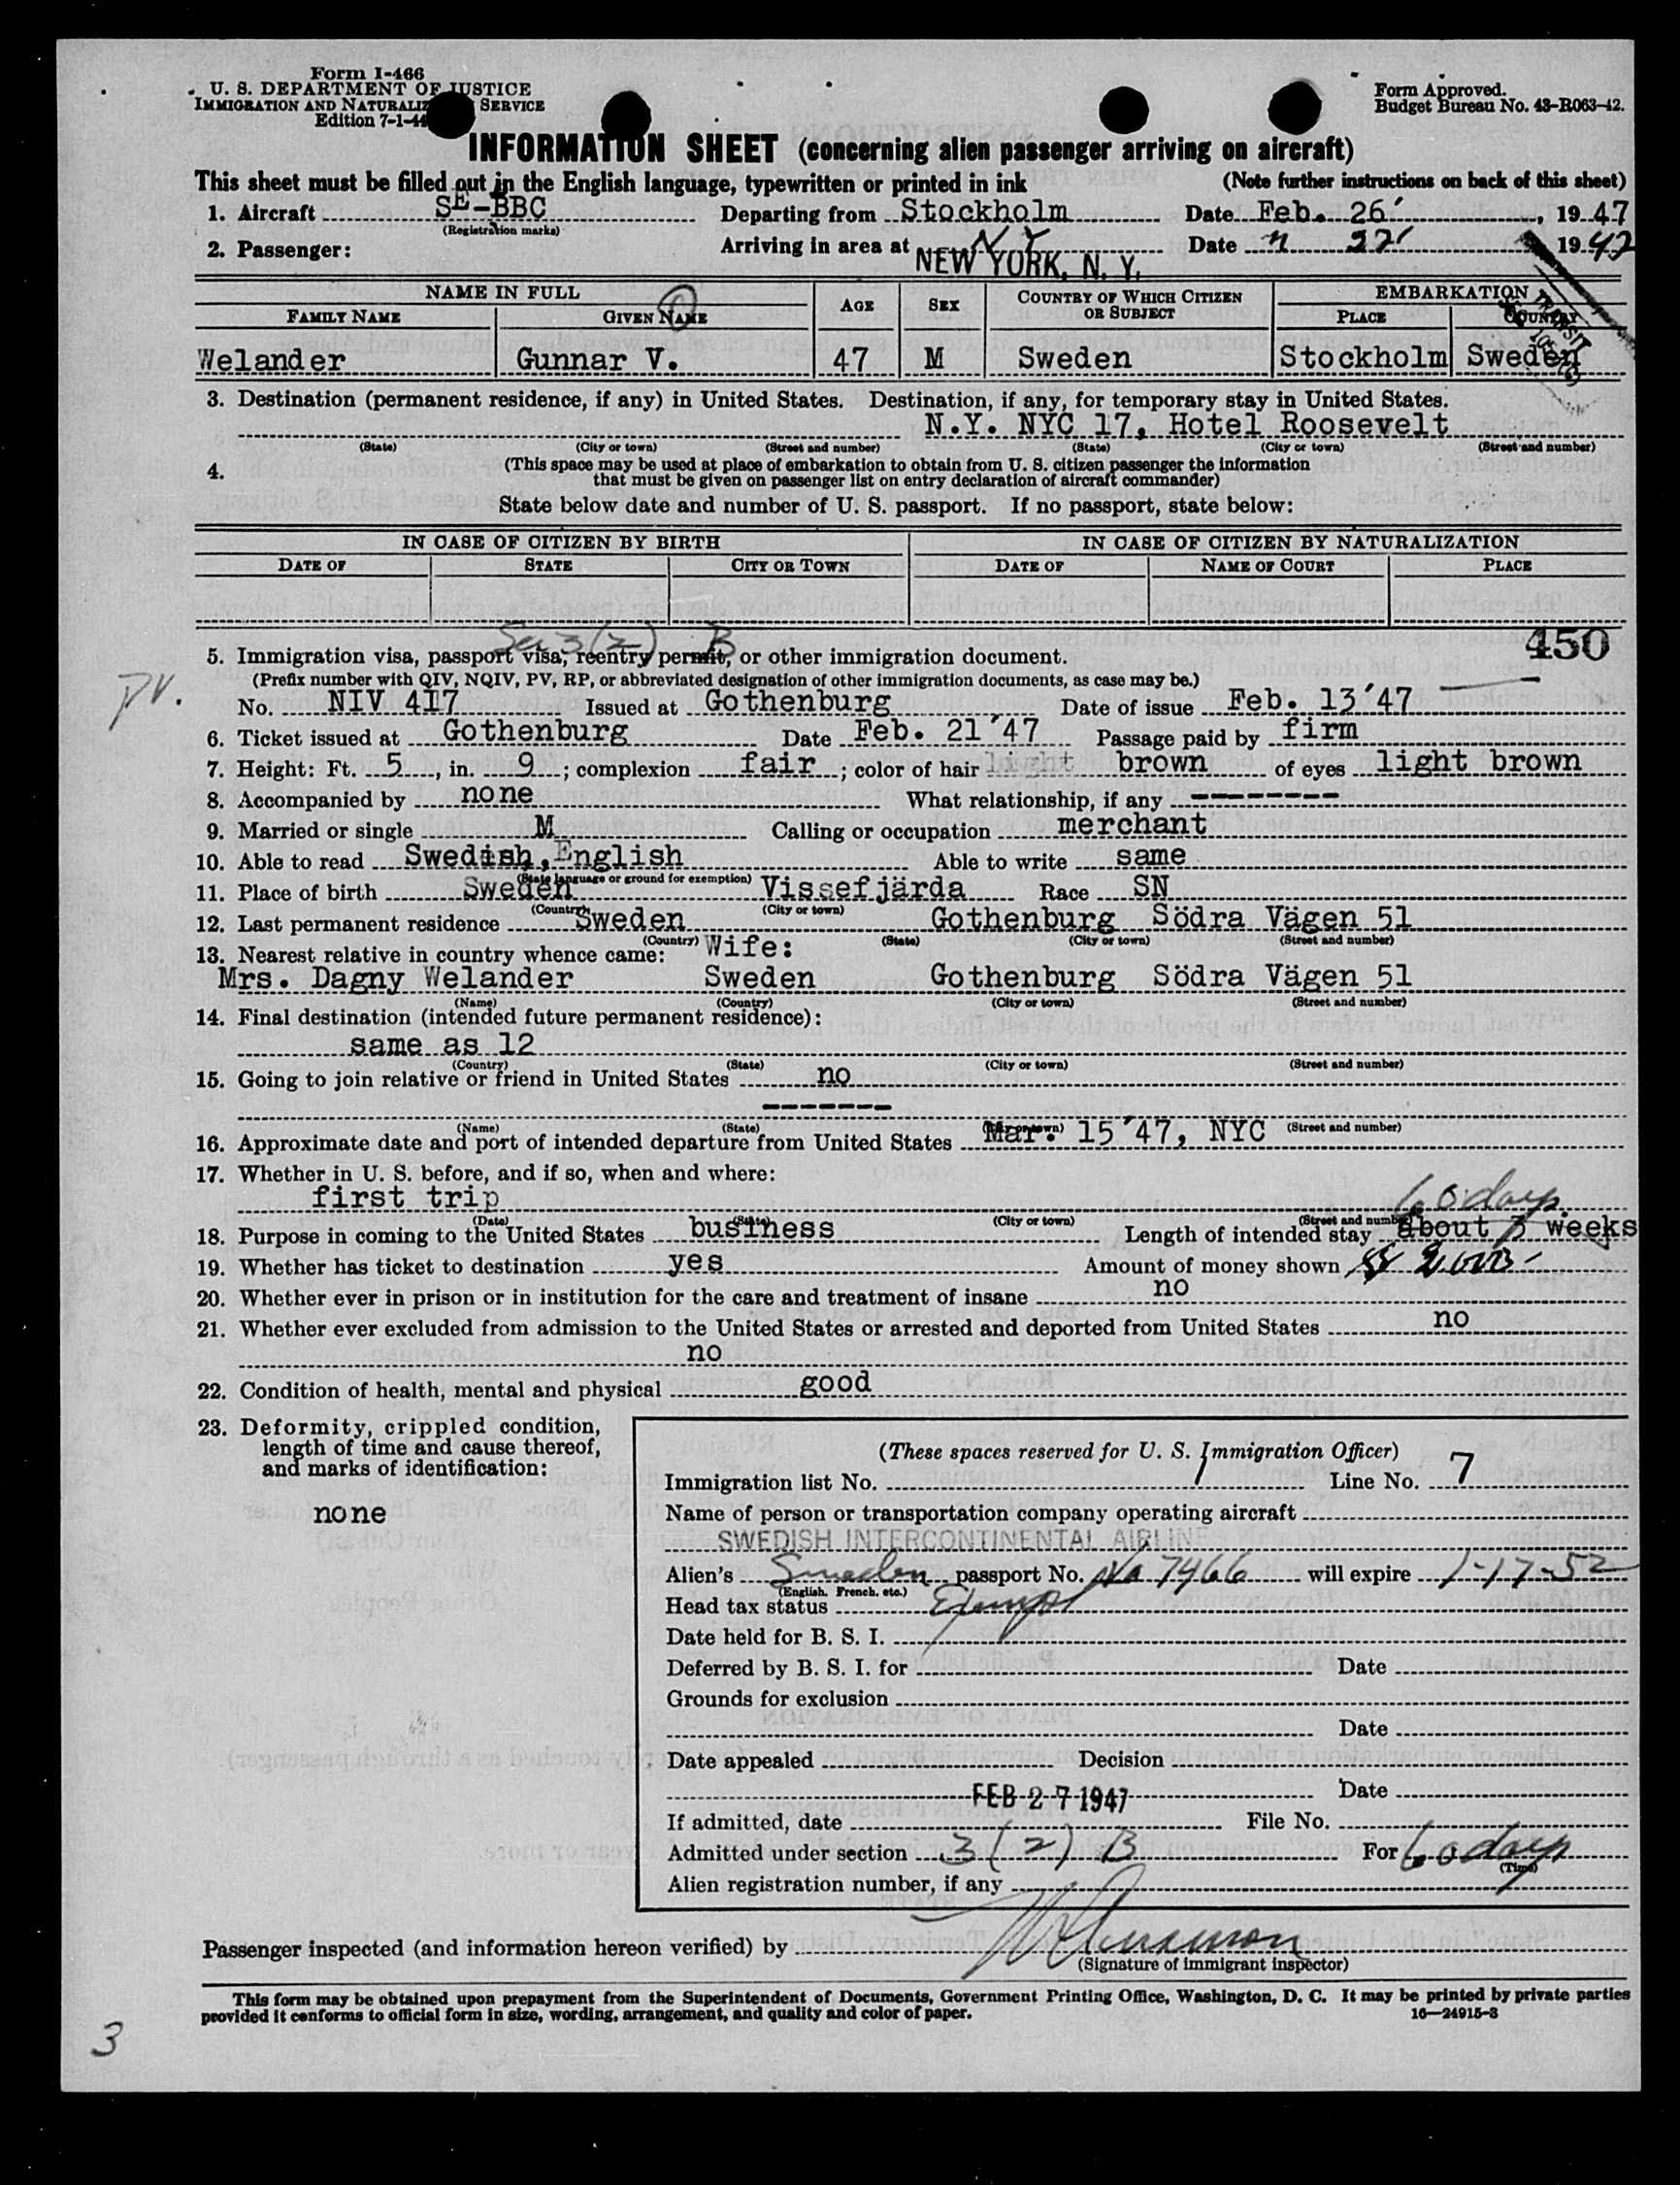 Form I-466
U. S. DEPARTMENT OF JUSTICE
IMMIGRATION AND SERVICE
Edition 7-1-44
Form Approved.
Budget Bureau No. 43-R063-42.
INFORMATION SHEET (concerning alien passenger arriving on aircraft)
This sheet must be filled out in the English language, typewritten or printed in ink (Note further instructions on back of this sheet)
1. Aircraft SE-BBC Departing from Stockholm Date Feb. 26' , 19 47
(Registration marks)
2. Passenger: Arriving in area at N Y Date " 27' 19 47
NEW YORK, N. Y.
NAME IN FULL AGE SEX COUNTRY OF WHICH CITIZEN OR SUBJECT EMBARKATION
FAMILY NAME GIVEN NAME PLACE COUNTRY
TRANSIT
Welander Gunnar V. 47 M Sweden Stockholm Sweden
3. Destination (permanent residence, if any) in United States. Destination, if any, for temporary stay in United States.
N.Y. NYC 17, Hotel Roosevelt
(State) (City or town) (Street and number) (State) (City or town) (Street and number)
4. (This space may be used at place of embarkation to obtain from U. S. citizen passenger the information
that must be given on passenger list on entry declaration of aircraft commander)
State below date and number of U. S. passport. If no passport, state below:
IN CASE OF CITIZEN BY BIRTH IN CASE OF CITIZEN BY NATURALIZATION
DATE OF STATE CITY OR TOWN DATE OF NAME OF COURT PLACE
Sec 3(2) B 450
5. Immigration visa, passport visa, reentry permit, or other immigration document.
(Prefix number with QIV, NQIV, PV, RP, or abbreviated designation of other immigration documents, as case may be.)
PV.
No. NIV 417 Issued at Gothenburg Date of issue Feb. 13'47
6. Ticket issued at Gothenburg Date Feb. 21'47 Passage paid by firm
7. Height: Ft. 5 , in. 9 ; complexion fair ; color of hair light brown of eyes light brown
8. Accompanied by none What relationship, if any ---------
9. Married or single M Calling or occupation merchant
10. Able to read Swedish, English Able to write same
(State language or ground for exemption)
11. Place of birth Sweden Vissefjärda Race SN
(Country) (City or town)
12. Last permanent residence Sweden Gothenburg Södra Vägen 51
(Country) (State) (City or town) (Street and number)
13. Nearest relative in country whence came: Wife:
Mrs. Dagny Welander Sweden Gothenburg Södra Vägen 51
(Name) (Country) (City or town) (Street and number)
14. Final destination (intended future permanent residence):
same as 12
(Country) (State) (City or town) (Street and number)
15. Going to join relative or friend in United States no
-------
(Name) (State) (City or town) (Street and number)
16. Approximate date and port of intended departure from United States Mar. 15'47, NYC
17. Whether in U. S. before, and if so, when and where:
first trip 60 days.
(Date) (State) (City or town) (Street and number)
18. Purpose in coming to the United States business Length of intended stay about 3 weeks
19. Whether has ticket to destination yes Amount of money shown
20. Whether ever in prison or in institution for the care and treatment of insane no
21. Whether ever excluded from admission to the United States or arrested and deported from United States no
no
22. Condition of health, mental and physical good
23. Deformity, crippled condition,
length of time and cause thereof,
and marks of identification:
none
(These spaces reserved for U. S. Immigration Officer)
Immigration list No. 1 Line No. 7
Name of person or transportation company operating aircraft
SWEDISH INTERCONTINENTAL AIRLINE
Alien's Sweden passport No. No 7466 will expire 1-17-52
(English, French, etc.)
Head tax status Exempt
Date held for B. S. I.
Deferred by B. S. I. for Date
Grounds for exclusion
Date
Date appealed Decision
FEB 27 1947 Date
If admitted, date File No.
Admitted under section 3(2) B For 60 days
(Time)
Alien registration number, if any
Passenger inspected (and information hereon verified) by
(Signature of immigrant inspector)
This form may be obtained upon prepayment from the Superintendent of Documents, Government Printing Office, Washington, D. C. It may be printed by private parties
provided it conforms to official form in size, wording, arrangement, and quality and color of paper. 16—24915-3
3